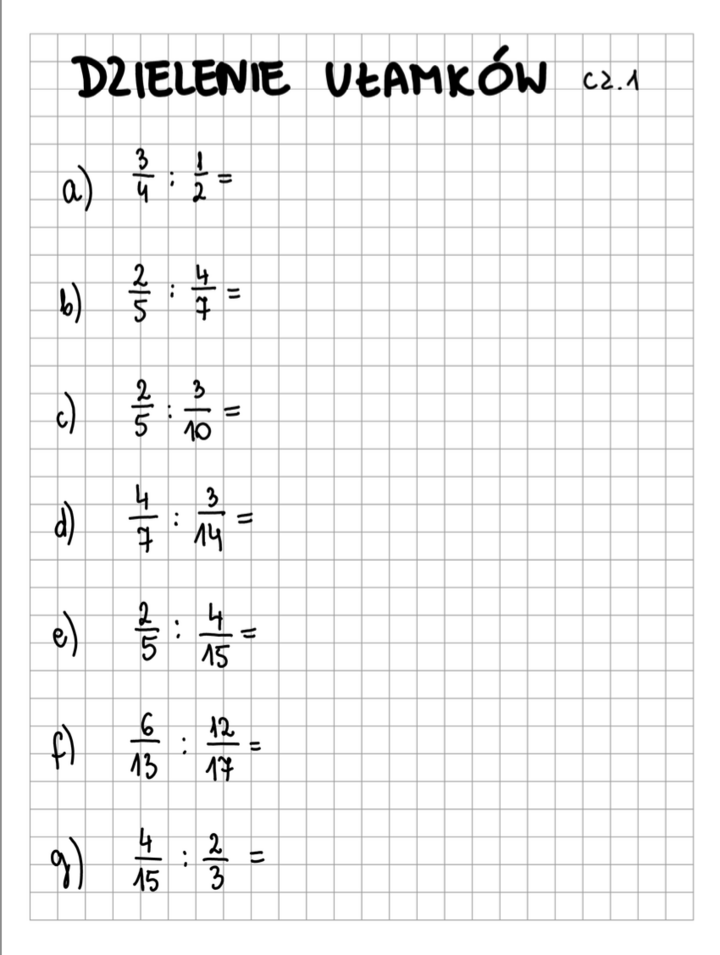 DZIELENIE UŁAMKÓW cz.1
a) 3/4 : 1/2 =
b) 2/5 : 4/7 =
c) 2/5 : 3/10 =
d) 4/7 : 3/14 =
e) 2/5 : 4/15 =
f) 6/13 : 12/17 =
g) 4/15 : 2/3 =